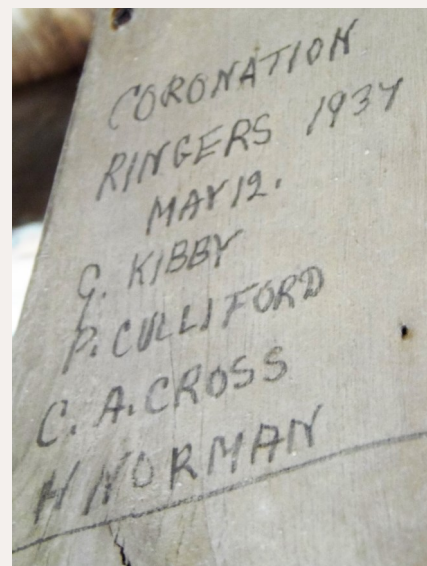 CORONATION
RINGERS 1937
MAY 12.
G. KIBBY
P. CULLIFORD
C. A. CROSS
H NORMAN